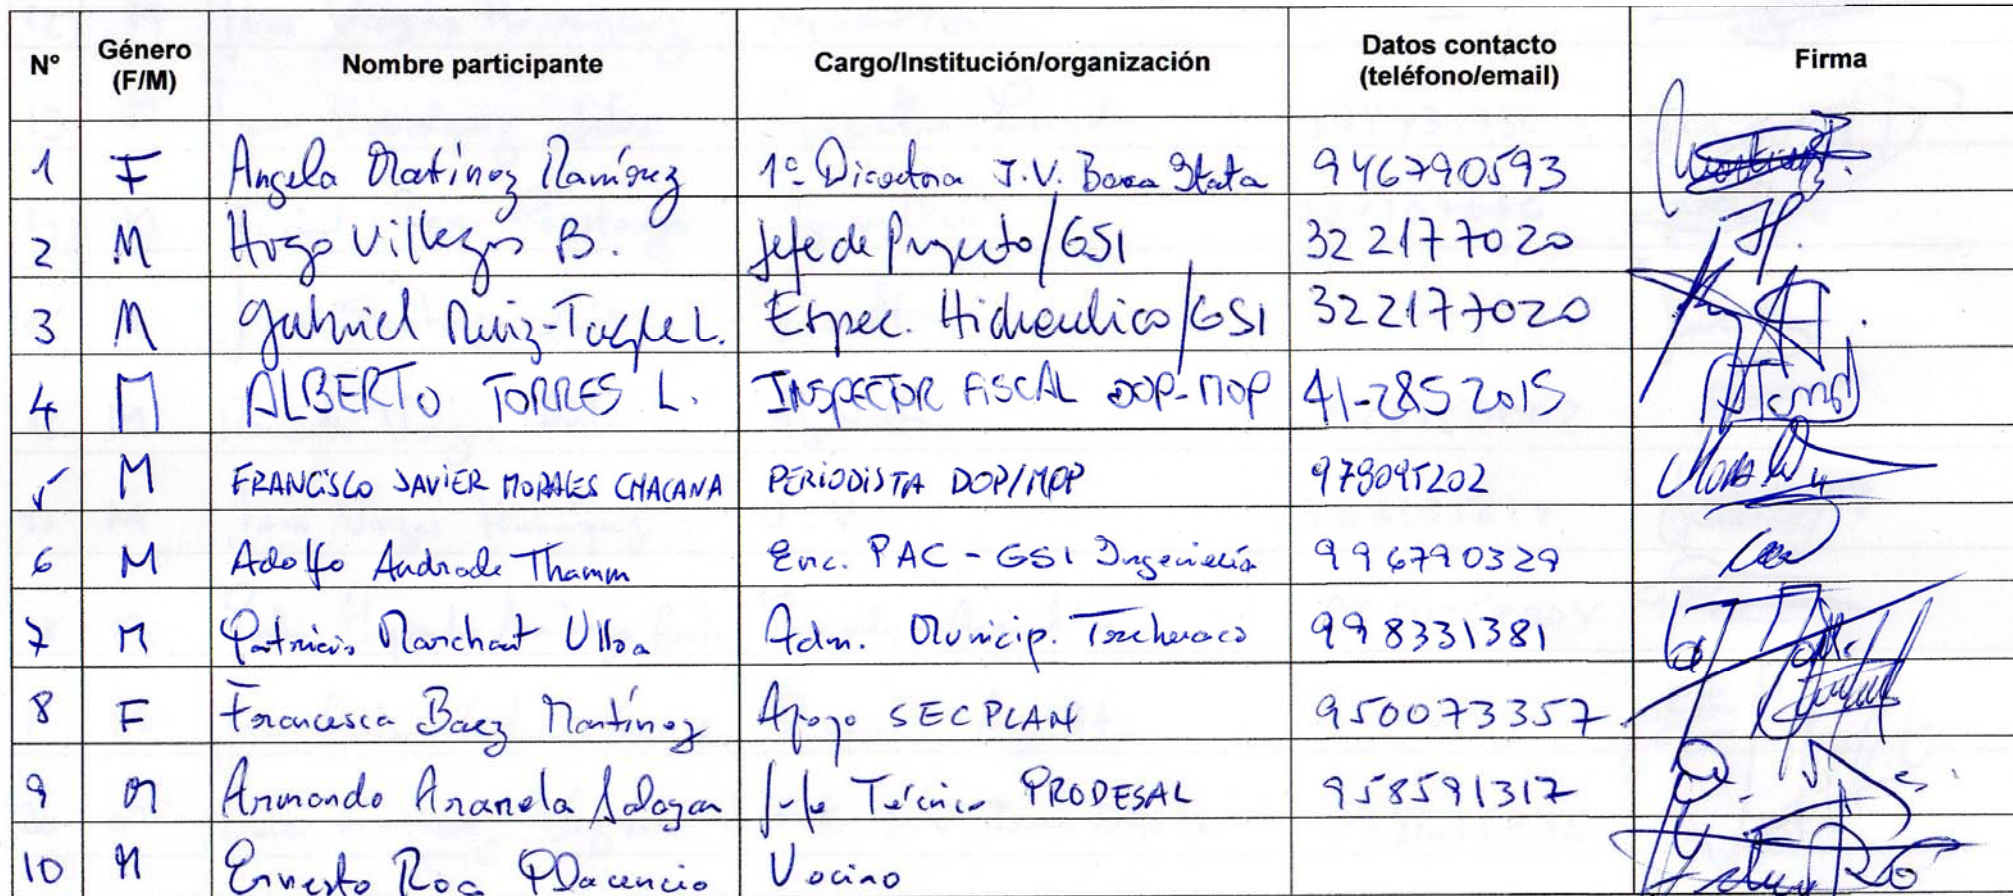 N° Género (F/M) Nombre participante Cargo/Institución/organización Datos contacto (teléfono/email) Firma
1 F Angela Martínez Ramírez 1ª Directora J.V. Boca 946790593
2 M Hugo Villegas B. Jefe de Proyecto/GSI 322177020
3 M Gabriel Ruiz-Tagle L. Espec. Hidraulico/GSI 322177020
4 M ALBERTO TORRES L. INSPECTOR FISCAL DOP-MOP 41-2852015
5 M FRANCISCO JAVIER MORALES CHACANA PERIODISTA DOP/MOP 979095202
6 M Adolfo Andrade Thamm Enc. PAC - GSI Ingeniería 996790329
7 M Patricio Marchant Ulloa Adm. Municip. 998331381
8 F Francesca Baez Martínez Apoyo SECPLAN 950073357
9 M Armando Araneda Jefe Técnico PRODESAL 958591317
10 M Ernesto Roa Placencio Vecino